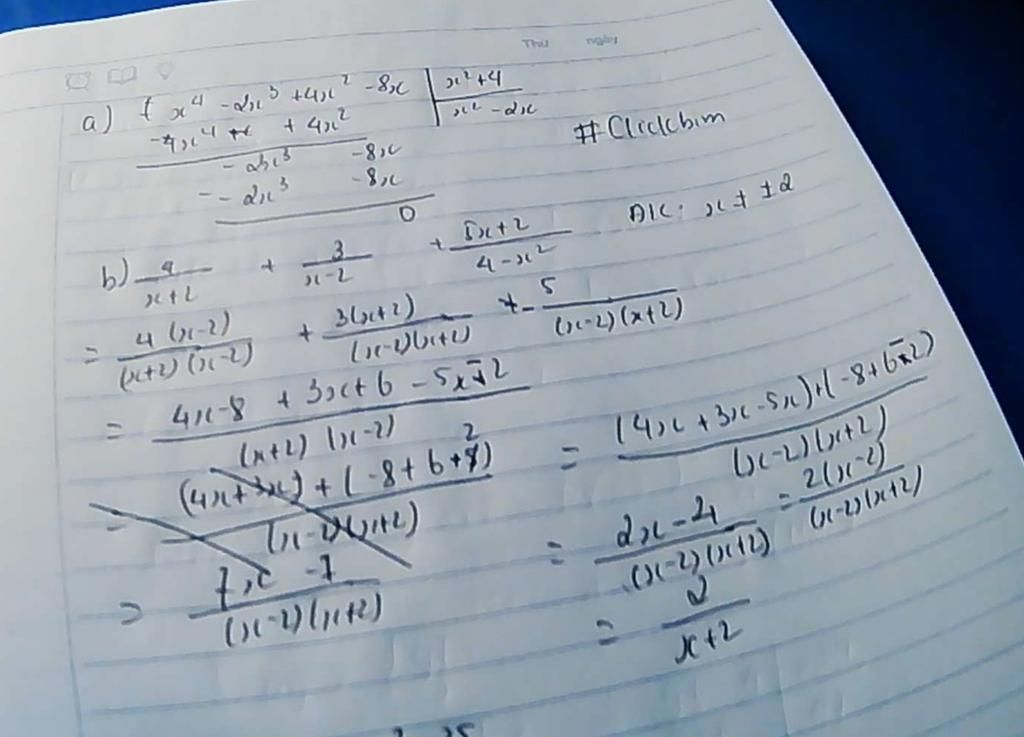 Thứ ngày
a) x⁴ - 2x³ + 4x² - 8x | x² + 4
x⁴ + 4x² | x² - 2x
- 2x³ - 8x
- - 2x³ - 8x
0
#Clickbim
b) 4/(x+2) + 3/(x-2) + (5x+2)/(4-x²) ĐK: x ≠ ±2
= 4(x-2)/((x+2)(x-2)) + 3(x+2)/((x-2)(x+2)) + - 5/((x-2)(x+2))
= (4x-8 + 3x+6 - 5x-2)/((x+2)(x-2))
= ((4x+3x) + (-8+6+2))/((x-2)(x+2))
= (7x - 7)/((x-2)(x+2))
= ((4x+3x-5x)+(-8+6-2))/((x-2)(x+2))
= (2x-4)/((x-2)(x+2)) = 2(x-2)/((x-2)(x+2))
= 2/(x+2)